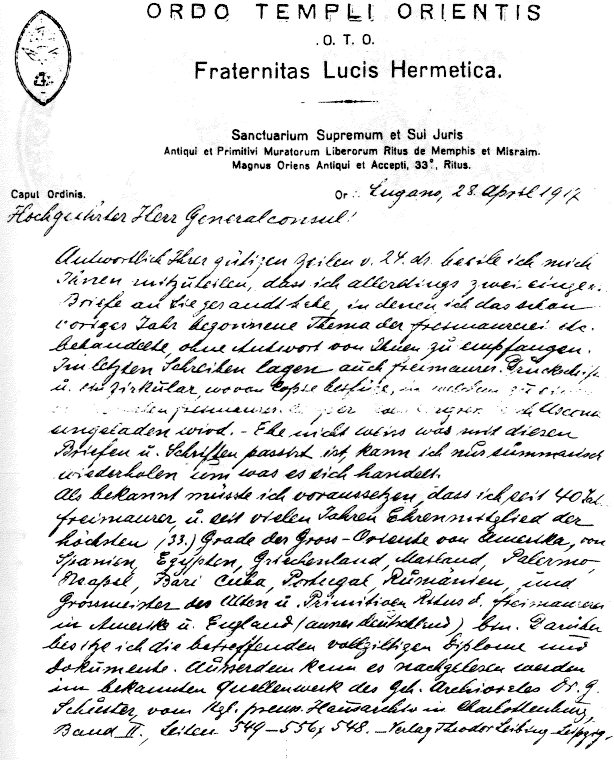 ORDO TEMPLI ORIENTIS
.O.T.O.
Fraternitas Lucis Hermetica.
Sanctuarium Supremum et Sui Juris
Antiqui et Primitivi Muratorum Liberorum Ritus de Memphis et Misraim.
Magnus Oriens Antiqui et Accepti, 33°, Ritus.
Caput Ordinis.
Or∴ Lugano, 28. April 1917
Hochgeehrter Herr Generalconsul!
Antwortlich Ihrer gütigen Zeilen v. 24. ds. beeile ich mich
Ihnen mitzuteilen, dass ich allerdings zwei einges.
Briefe an Sie gesandt habe, in denen ich das schon
voriges Jahr begonnene Thema der Freimaurerei etc.
behandelte, ohne Antwort von Ihnen zu empfangen.
Im letzten Schreiben lagen auch freimaurer. Druckschrift
u. ein Zirkular, wovon Copie besitze, in welchem zu
Ascona
eingeladen wird. - Ehe nicht weiss was mit diesen
Briefen u. Schriften passirt ist, kann ich nur summarisch
wiederholen um was es sich handelt.
Als bekannt müsste ich voraussetzen, dass ich seit 40 Jah.
Freimaurer, u. seit vielen Jahren Ehrenmitglied der
höchsten (33.) Grade der Gross-Oriente von Amerika, von
Spanien, Egypten, Griechenland, Mailand, Palermo,
Neapel, Bari Cuba, Portugal Rumänien, und
Grosmeister des Alten u. Primitiven Ritus d. Freimaurerei
in Amerika u. England (ausser Deutschland) bin. Darüber
besitze ich die betreffenden vollgiltigen Diplome und
Dokumente. Ausserdem kann es nachgelesen werden
im bekannten Quellenwerk des Geh. Archivrates Dr. G.
Schuster, vom Kgl. preuss. Hausarchiv in Charlottenburg,
Band II, Seiten 549-556, 548. - Verlag Theodor Leibing Leipzig,